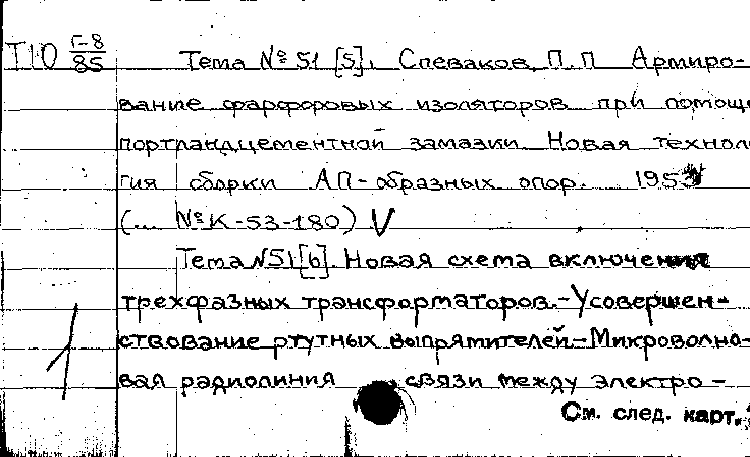 Т10 Г-8/85 Тема № 51 [5]. Спеваков, П.П Армиро-
вание фарфоровых изоляторов при помощи
портландцементной замазки. Новая технол
гия сборки АП-образных опор. 1953
(... №К-53-180) V
Тема №51[6]. Новая схема включения
трехфазных трансформаторов.-Усовершен-
ствование ртутных выпрямителей-Микроволно-
вая радиолиния связи между электро-
См. след. карт.